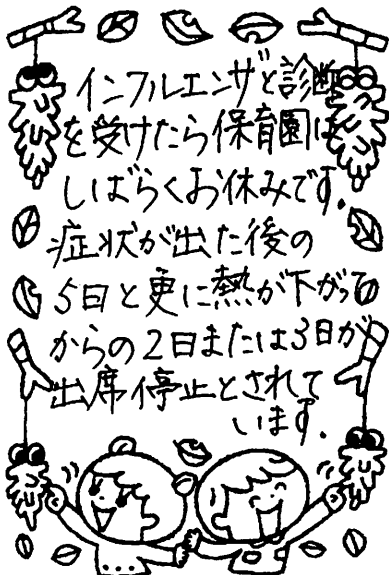 インフルエンザと診断
を受けたら保育園は
しばらくお休みです.
症状が出た後の
5日と更に熱が下がって
からの2日または3日が
出席停止とされて
います.